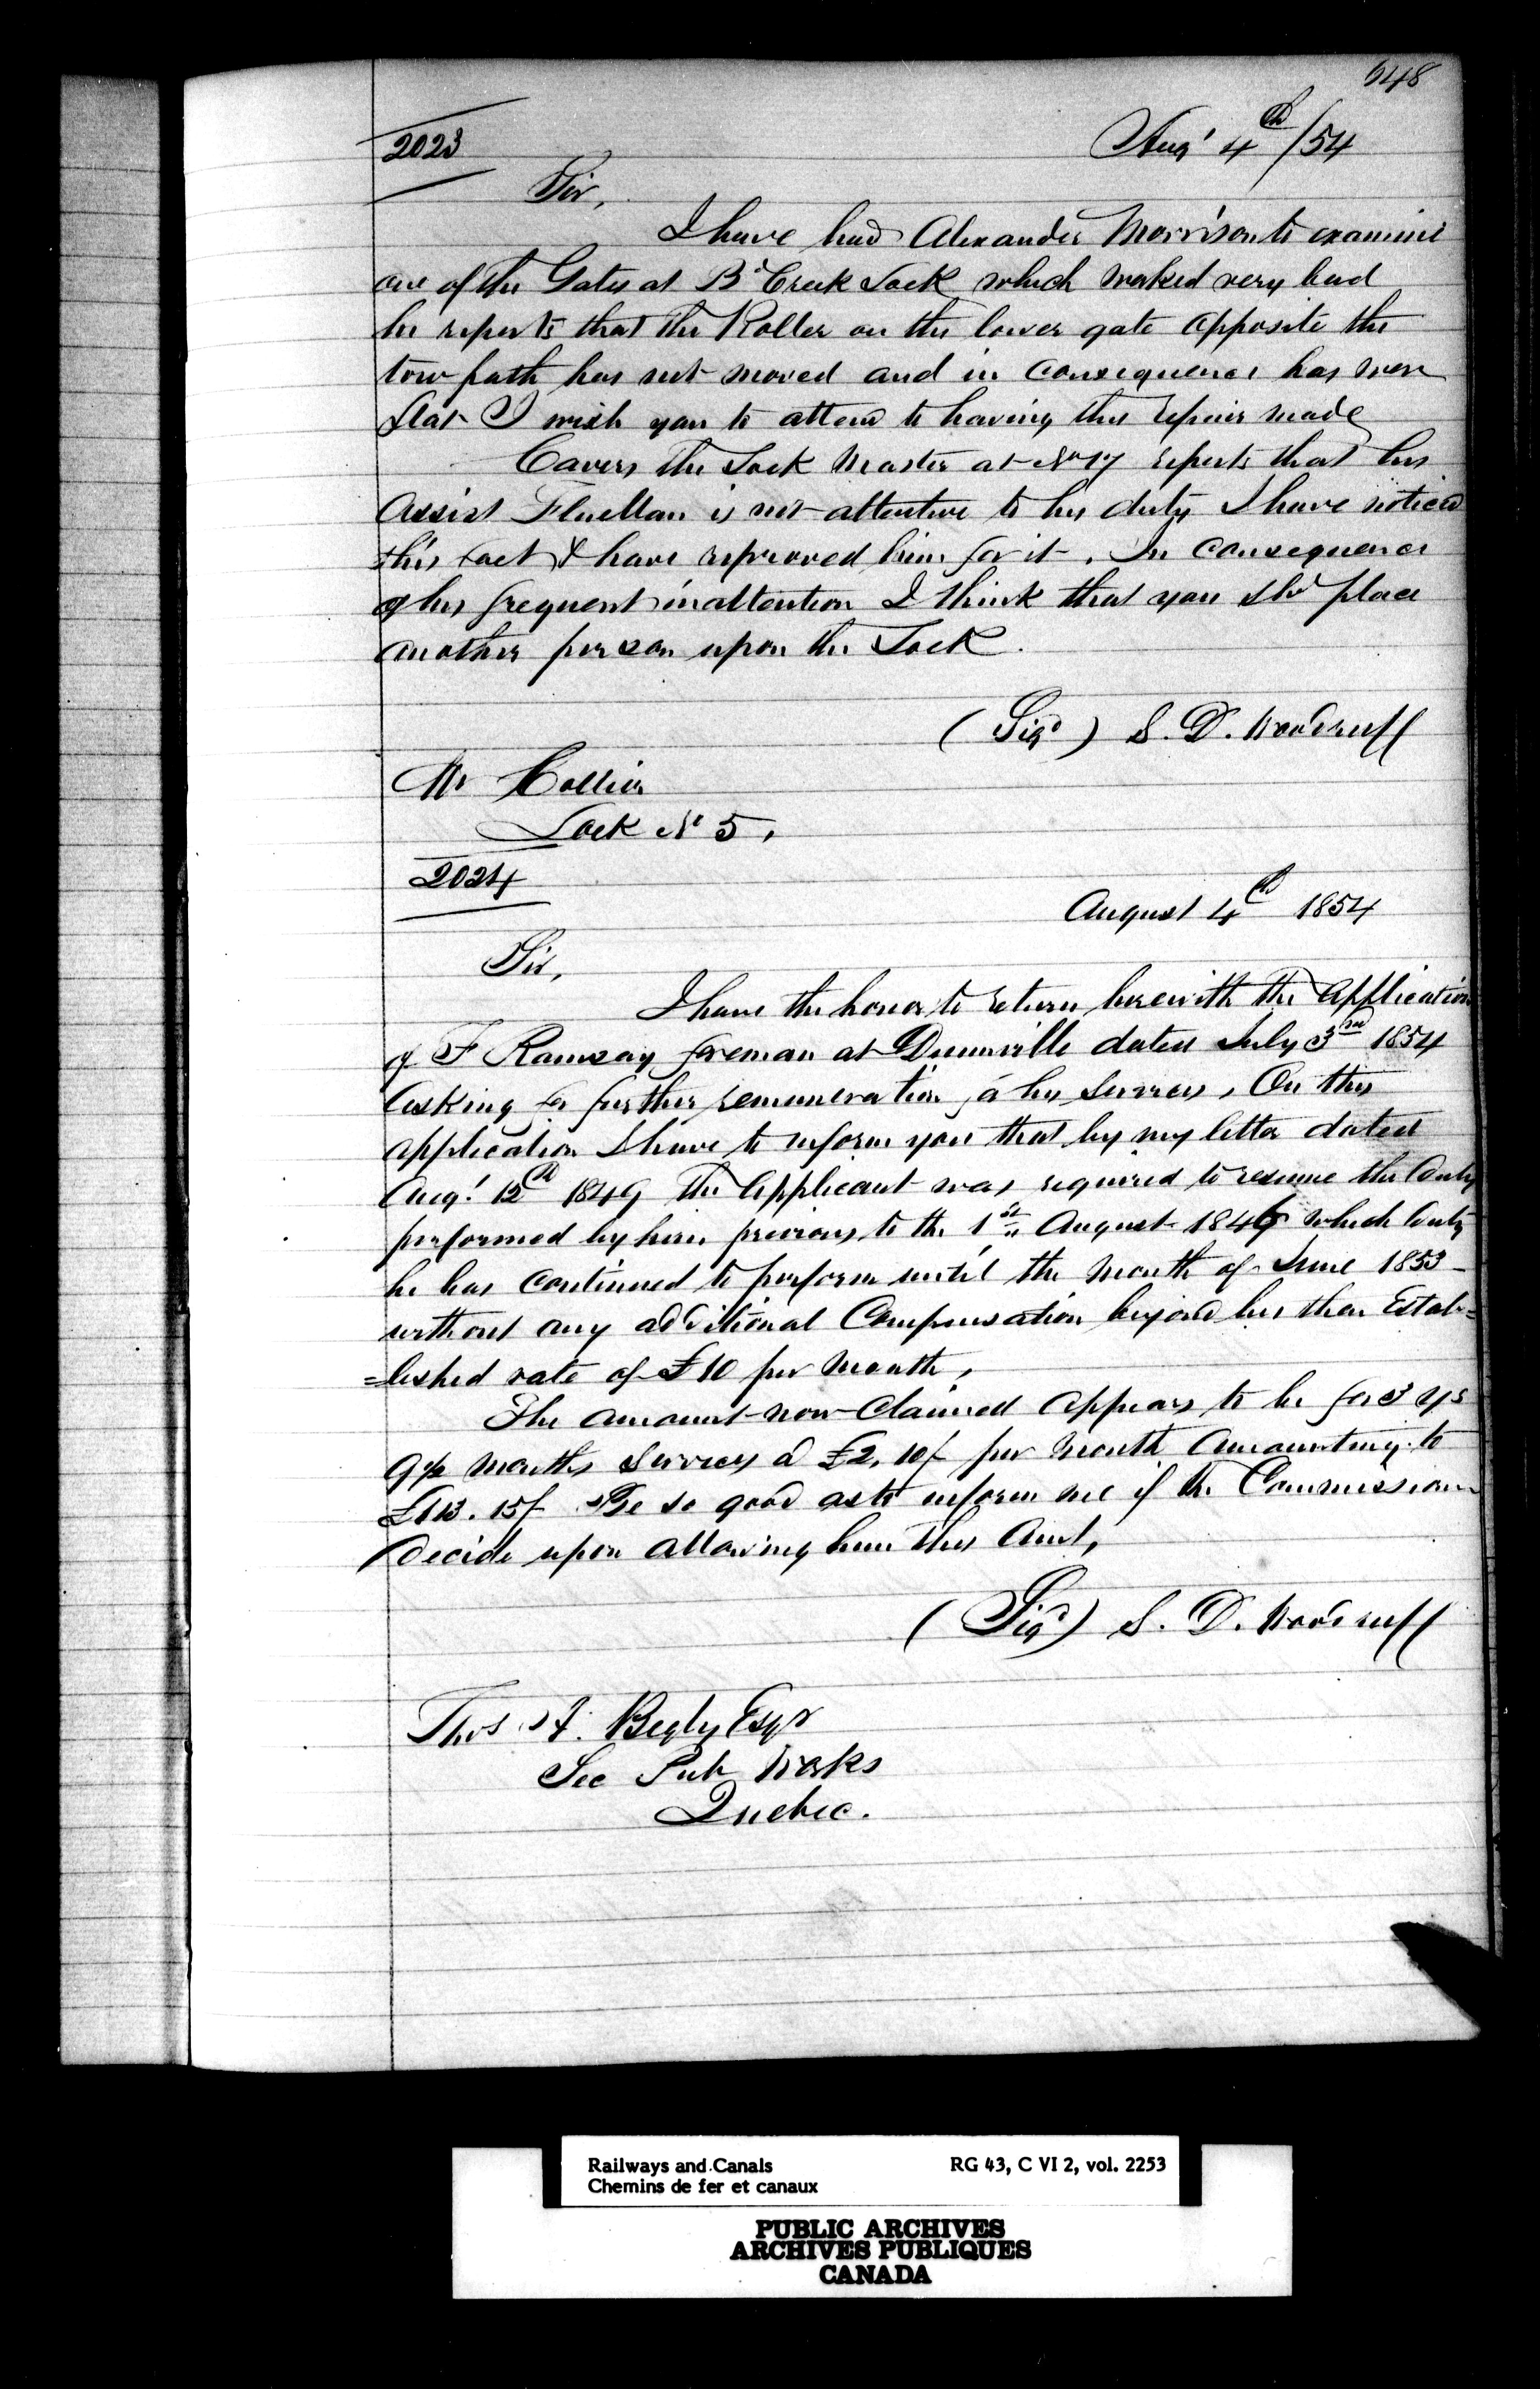 648
2023
Augt 4th /54
Sir,
I have had Alexander Morrison to examine
one of the Gates at Bd Creek Lock which worked very bad
he reports that the Roller on the lower gate opposite the
tow path has not moved and in consequence has worn
flat I wish you to attend to having this repair made
Cavers the Lock Master at No 17 reports that his
Assist Fluellan is not attentive to his duty I have noticed
this fact & have reproved him for it. In consequence
of his frequent inattention I think that you shd place
another person upon the Lock.
(Sigd) S. D. Woodruff
Mr Collier
Lock No 5,
2024
August 4th 1854
Sir,
I have the honor to return herewith the Application
of F Ramsay foreman at Dunnville dated July 3rd 1854
Asking for further remuneration for his services, On this
application I have to inform you that by my letter dated
Aug! 12th 1849 The Applicant was required to resume the duty
performed by him previous to the 1st August 1846 which duty
he has continued to perform until the Month of June 1853
without any additional Compensation beyond his then Estab=
=lished rate of £10 per Month,
The amount now Claimed Appears to be for 3 ys
9½ months services @ £2. 10/ per Month Amounting to
£113. 15/ Be so good as to inform me if the Commissioners
decide upon allowing him this Amt,
(Sigd) S. D. Woodruff
Thos A. Begly Esqr
Sec Pub Works
Quebec.
Railways and Canals
Chemins de fer et canaux
RG 43, C VI 2, vol. 2253
PUBLIC ARCHIVES
ARCHIVES PUBLIQUES
CANADA